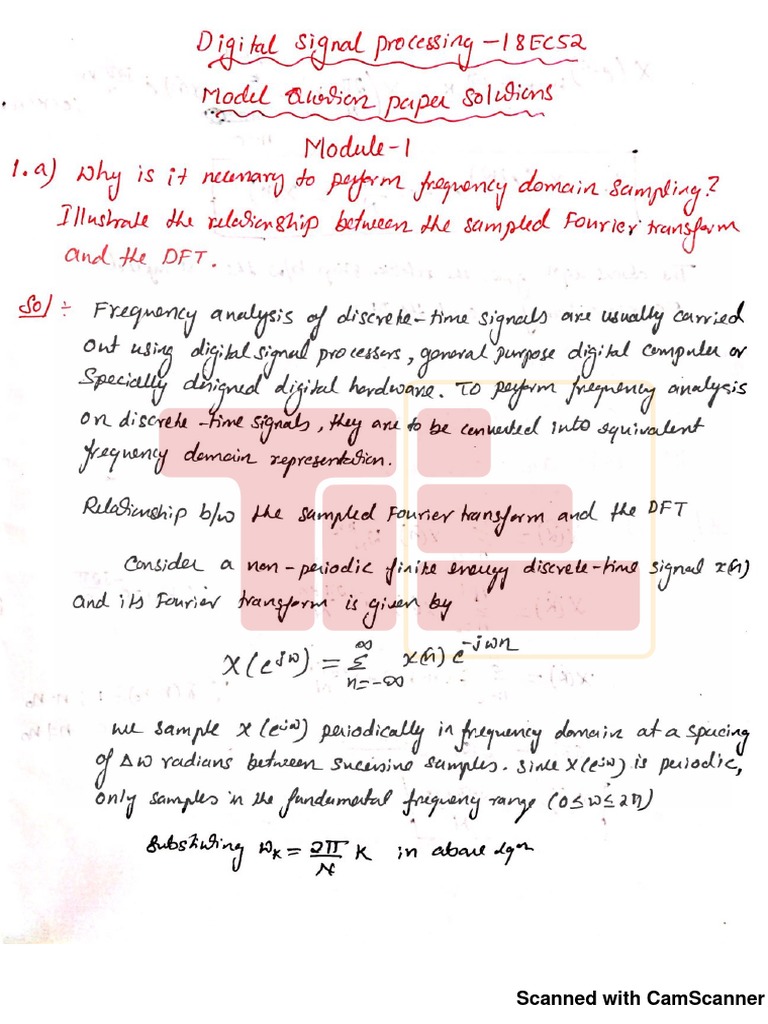 Digital signal processing -18EC52
Model Question paper solutions
Module-1
1.a) Why is it necessary to perform frequency domain sampling?
Illustrate the relationship between the sampled Fourier transform
and the DFT.
Sol :- Frequency analysis of discrete-time signals are usually carried
out using digital signal processers, general purpose digital computer or
Specially designed digital hardware. To perform frequency analysis
on discrete-time signals, they are to be converted into equivalent
frequency domain representation.
Relationship b/w the sampled Fourier transform and the DFT
Consider a non-periodic finite energy discrete-time signal x(n)
and its Fourier transform is given by
X(e^{jω}) = Σ_{n=-∞}^{∞} x(n) e^{-jωn}
we sample X(e^{jω}) periodically in frequency domain at a spacing
of Δω radians between successive samples. Since X(e^{jω}) is periodic,
only samples in the fundamental frequency range (0≤ω≤2π)
Substituting ω_K = 2π/N K in above eqn
TIE
Scanned with CamScanner